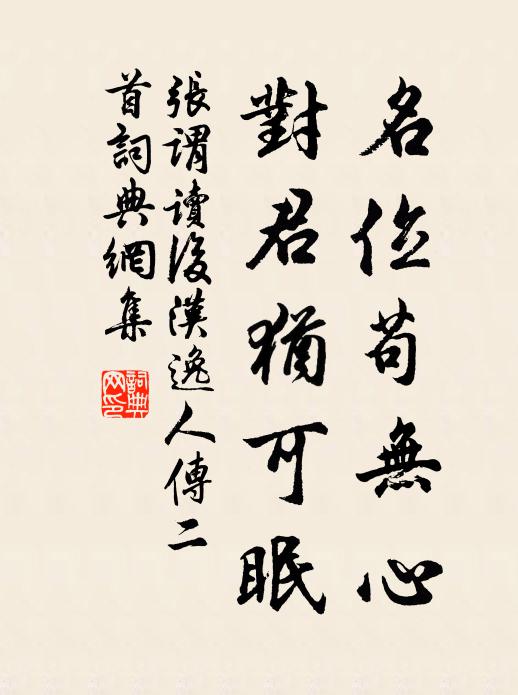 名位苟無心
對君猶可眠
張謂讀後漢逸人傳二
首詞典網集
詞典
网印